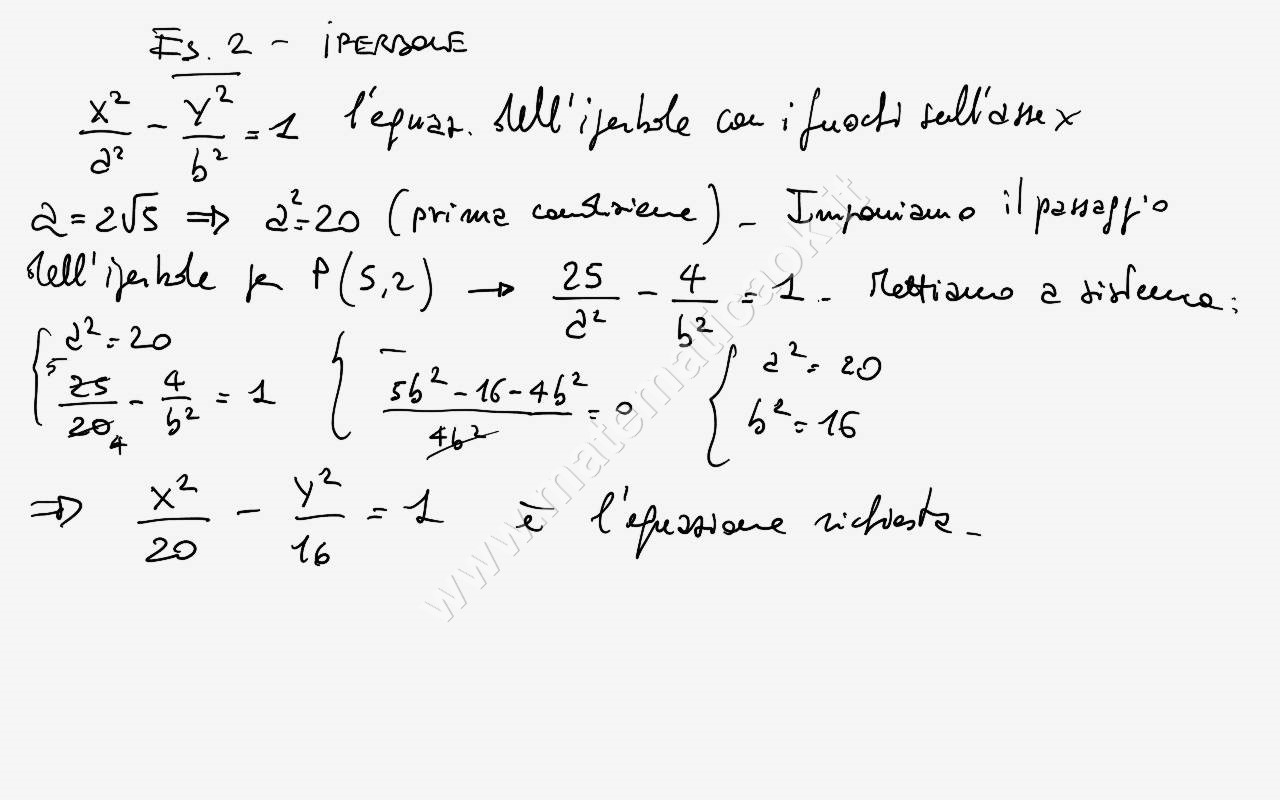 Es. 2 - IPERBOLE
x²/a² - y²/b² = 1 l'equaz. dell'iperbole con i fuochi sull'asse x
a = 2√5 ⇒ a² = 20 (prima condizione) - Imponiamo il passaggio
dell'iperbole per P(5,2) → 25/a² - 4/b² = 1. Mettiamo a sistema:
{ a² = 20 { — { a² = 20
25/20 - 4/b² = 1 (5b² - 16 - 4b²)/4b² = 0 b² = 16
5 4
⇒ x²/20 - y²/16 = 1 è l'equazione richiesta -
www.matematicaok.it